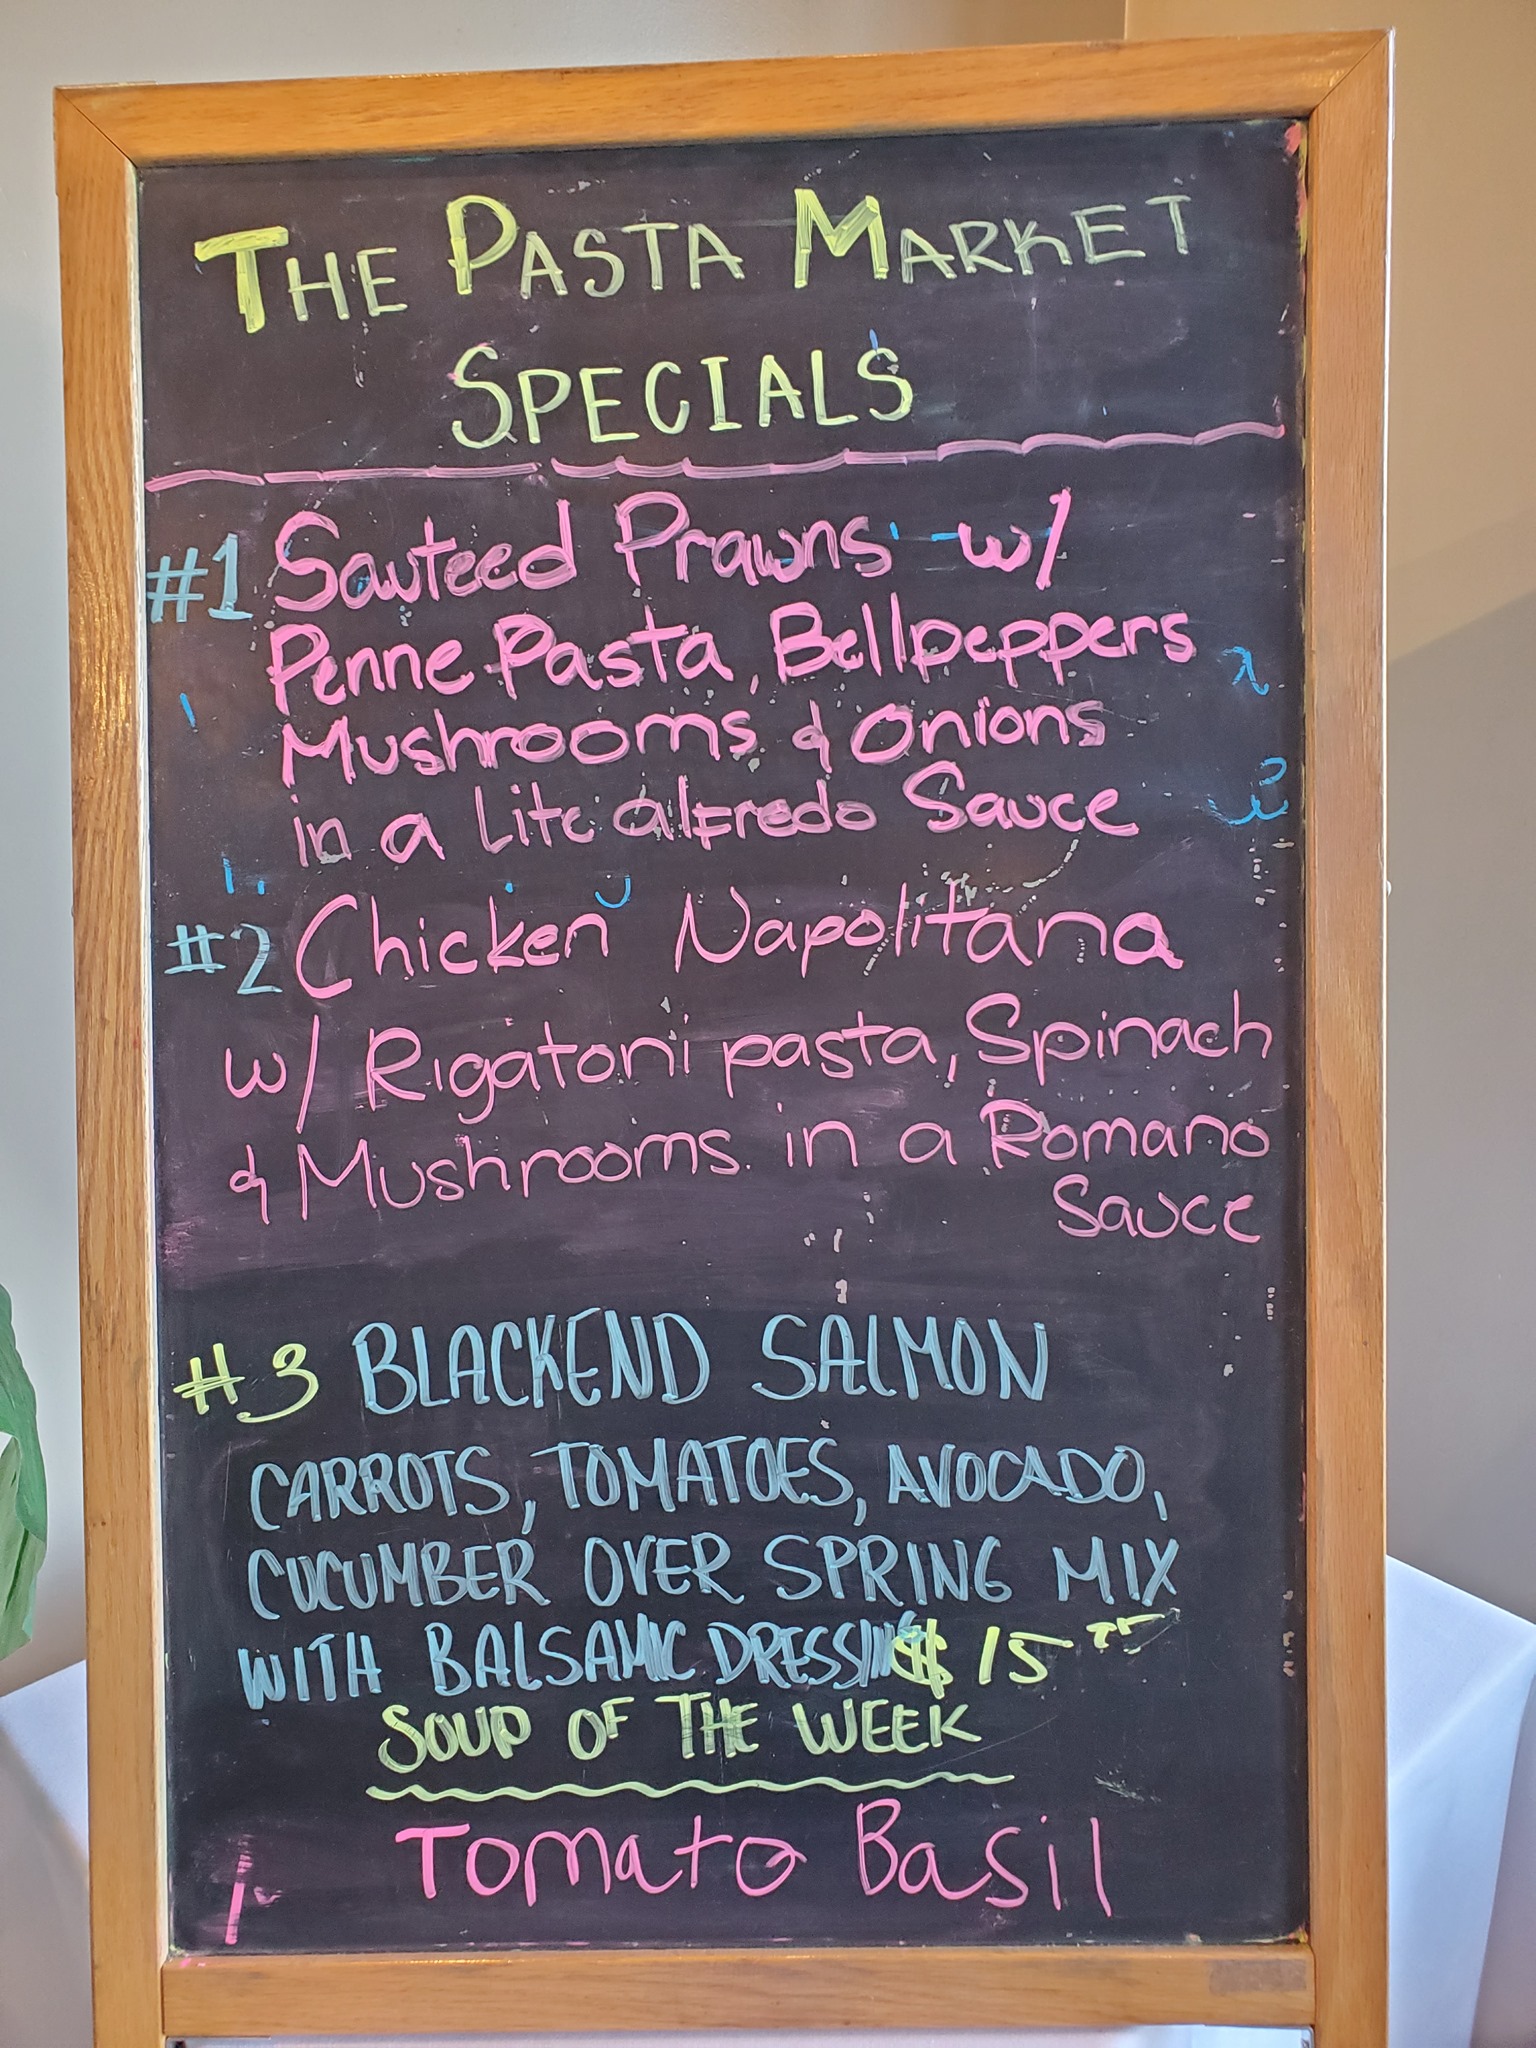 THE PASTA MARKET
SPECIALS
#1 Sauteed Prawns w/
Penne Pasta, Bellpeppers
Mushrooms & Onions
in a Lite alfredo Sauce
#2 Chicken Napolitana
w/ Rigatoni pasta, Spinach
& Mushrooms in a Romano
Sauce
#3 BLACKEND SALMON
CARROTS, TOMATOES, AVOCADO,
CUCUMBER OVER SPRING MIX
WITH BALSAMIC DRESSING $15
SOUP OF THE WEEK
Tomato Basil